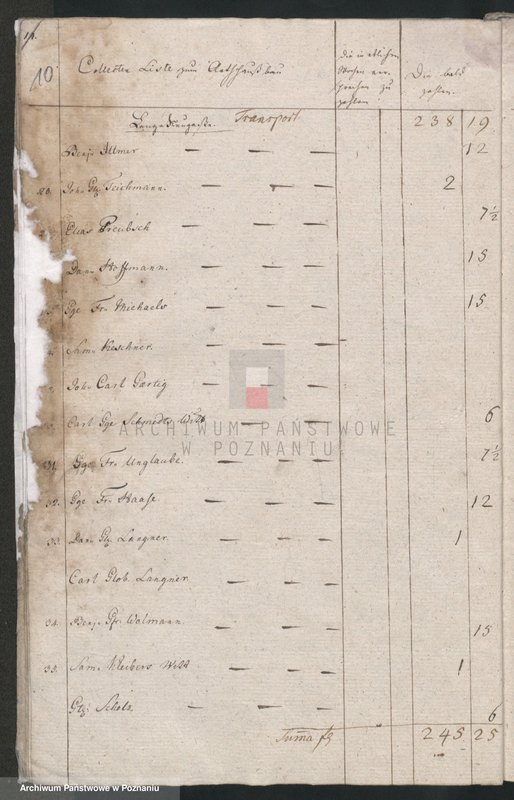 10
Collecten Liste zum Rathhauß bau
die in etlichen
Wochen ver-
sprochen zu
zahlen
Die bald
zahlen.
Transport 238 19
Benj. Illmer — — — 12
Joh. Glg. Teichmann. — — — 2
Elias Preubsch — — — 7½
Dan. Hoffmann. — — — 15
Gge Fr. Michaels — — — 15
Sam. Keschner. — — —
Joh. Carl Gærtig — — —
Carl Gge Schmedts Witt — — — 6
31. Gge. Fr. Unglaube. — — — 7½
32. Gge Fr. Haase. — — — 12
33. Dan. Glg. Langner — — — 1
Carl Glob. Langner — — —
34. Benj. Gfr. Wolmann — — — 15
35. Sam. Kleibers Witt — — — 1
Glg. Scholz. — — — 6
Summa 245 25
ARCHIWUM PAŃSTWOWE
W POZNANIU
Archiwum Państwowe w Poznaniu